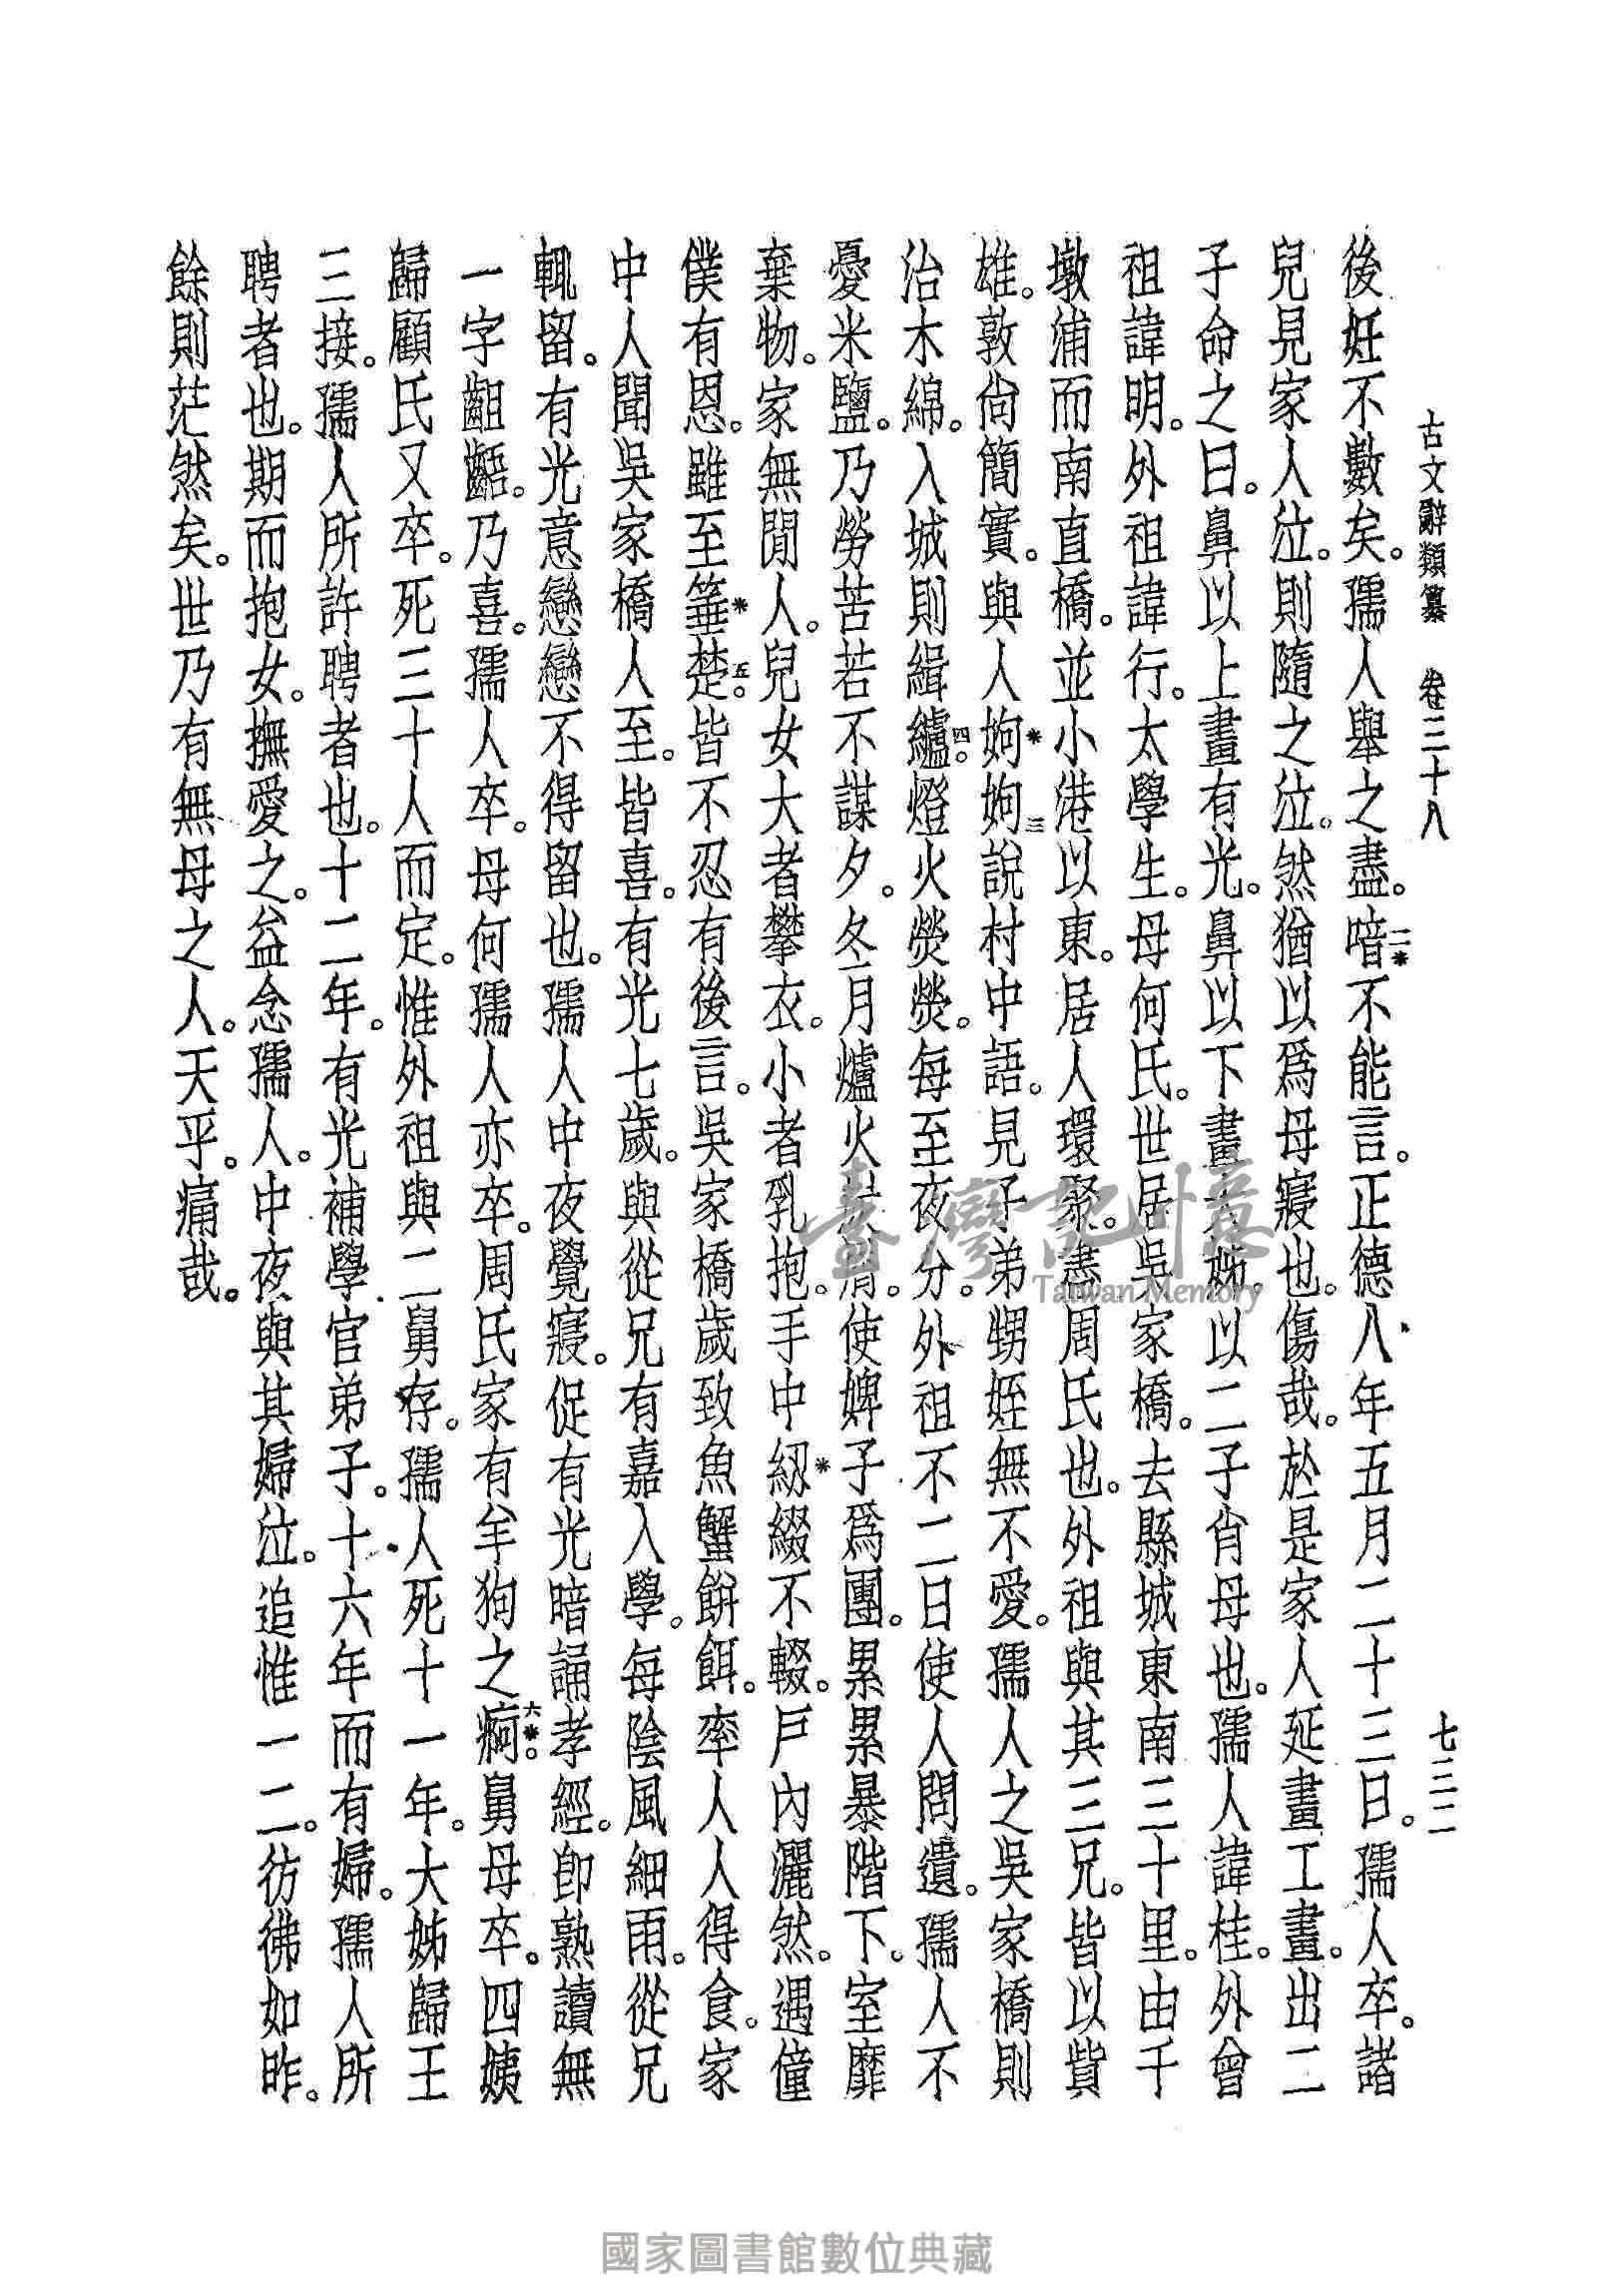 古文辭類纂　卷三十八　七三二
後妊不數矣。孺人舉之盡。喑二*不能言。正德八年五月二十三日。孺人卒。諸
兒見家人泣。則隨之泣。然猶以爲母寢也。傷哉。於是家人延畫工畫。出二
子命之曰。鼻以上畫有光。鼻以下畫大姊。以二子肖母也。孺人諱桂。外曾
祖諱明。外祖諱行。太學生。母何氏。世居吳家橋。去縣城東南三十里。由千
墩浦而南直橋。並小港以東。居人環聚。盡周氏也。外祖與其三兄。皆以貲
雄。敦尙簡實。與人姁*姁三說村中語。見子弟甥姪無不愛。孺人之吳家橋則
治木綿。入城則緝纑四。燈火熒熒。每至夜分。外祖不二日使人問遺。孺人不
憂米鹽。乃勞苦若不謀夕。冬月爐火炭屑。使婢子爲團。累累暴階下。室靡
棄物。家無閒人。兒女大者攀衣。小者乳抱。手中紉*綴不輟。戶內灑然。遇僮
僕有恩。雖至箠*楚五。皆不忍有後言。吳家橋歲致魚蟹餅餌。率人人得食。家
中人聞吳家橋人至。皆喜。有光七歲。與從兄有嘉入學。每陰風細雨。從兄
輒留。有光意戀戀不得留也。孺人中夜覺寢。促有光暗誦孝經。卽熟讀無
一字齟齬。乃喜。孺人卒。母何孺人亦卒。周氏家有羊狗之痾六*。舅母卒。四姨
歸顧氏又卒。死三十人而定。惟外祖與二舅存。孺人死十一年。大姊歸王
三接。孺人所許聘者也。十二年。有光補學官弟子。十六年而有婦。孺人所
聘者也。期而抱女。撫愛之。益念孺人。中夜與其婦泣。追惟一二。彷彿如昨。
餘則茫然矣。世乃有無母之人。天乎。痛哉。
臺灣記憶
Taiwan Memory
國家圖書館數位典藏